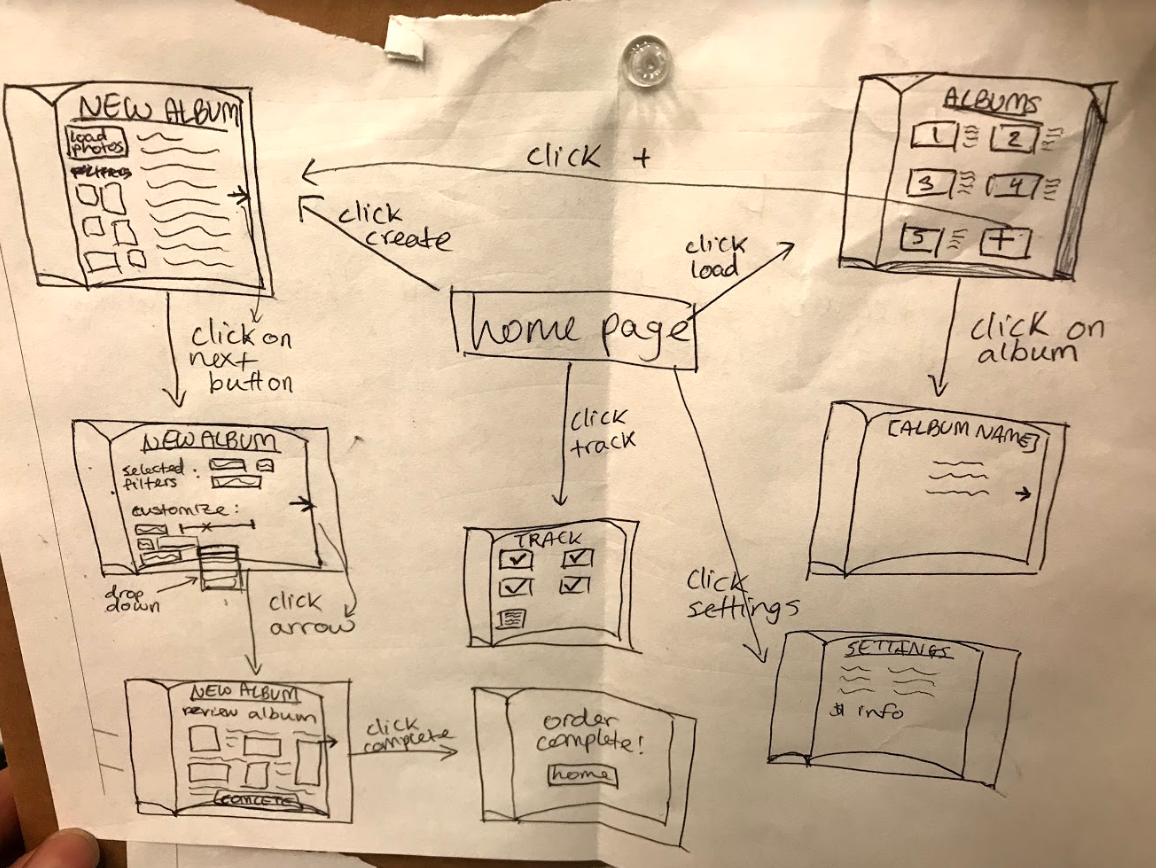 NEW ALBUM
load
photos
FILTERS
click +
ALBUMS
1
2
3
4
5
+
click
create
click
load
home page
click on
next
button
click
track
click on
album
NEW ALBUM
selected :
filters
customize:
drop
down
click
arrow
TRACK
click
settings
[ALBUM NAME]
SETTINGS
$ info
NEW ALBUM
review album
COMPLETE
click
complete
order
complete!
home